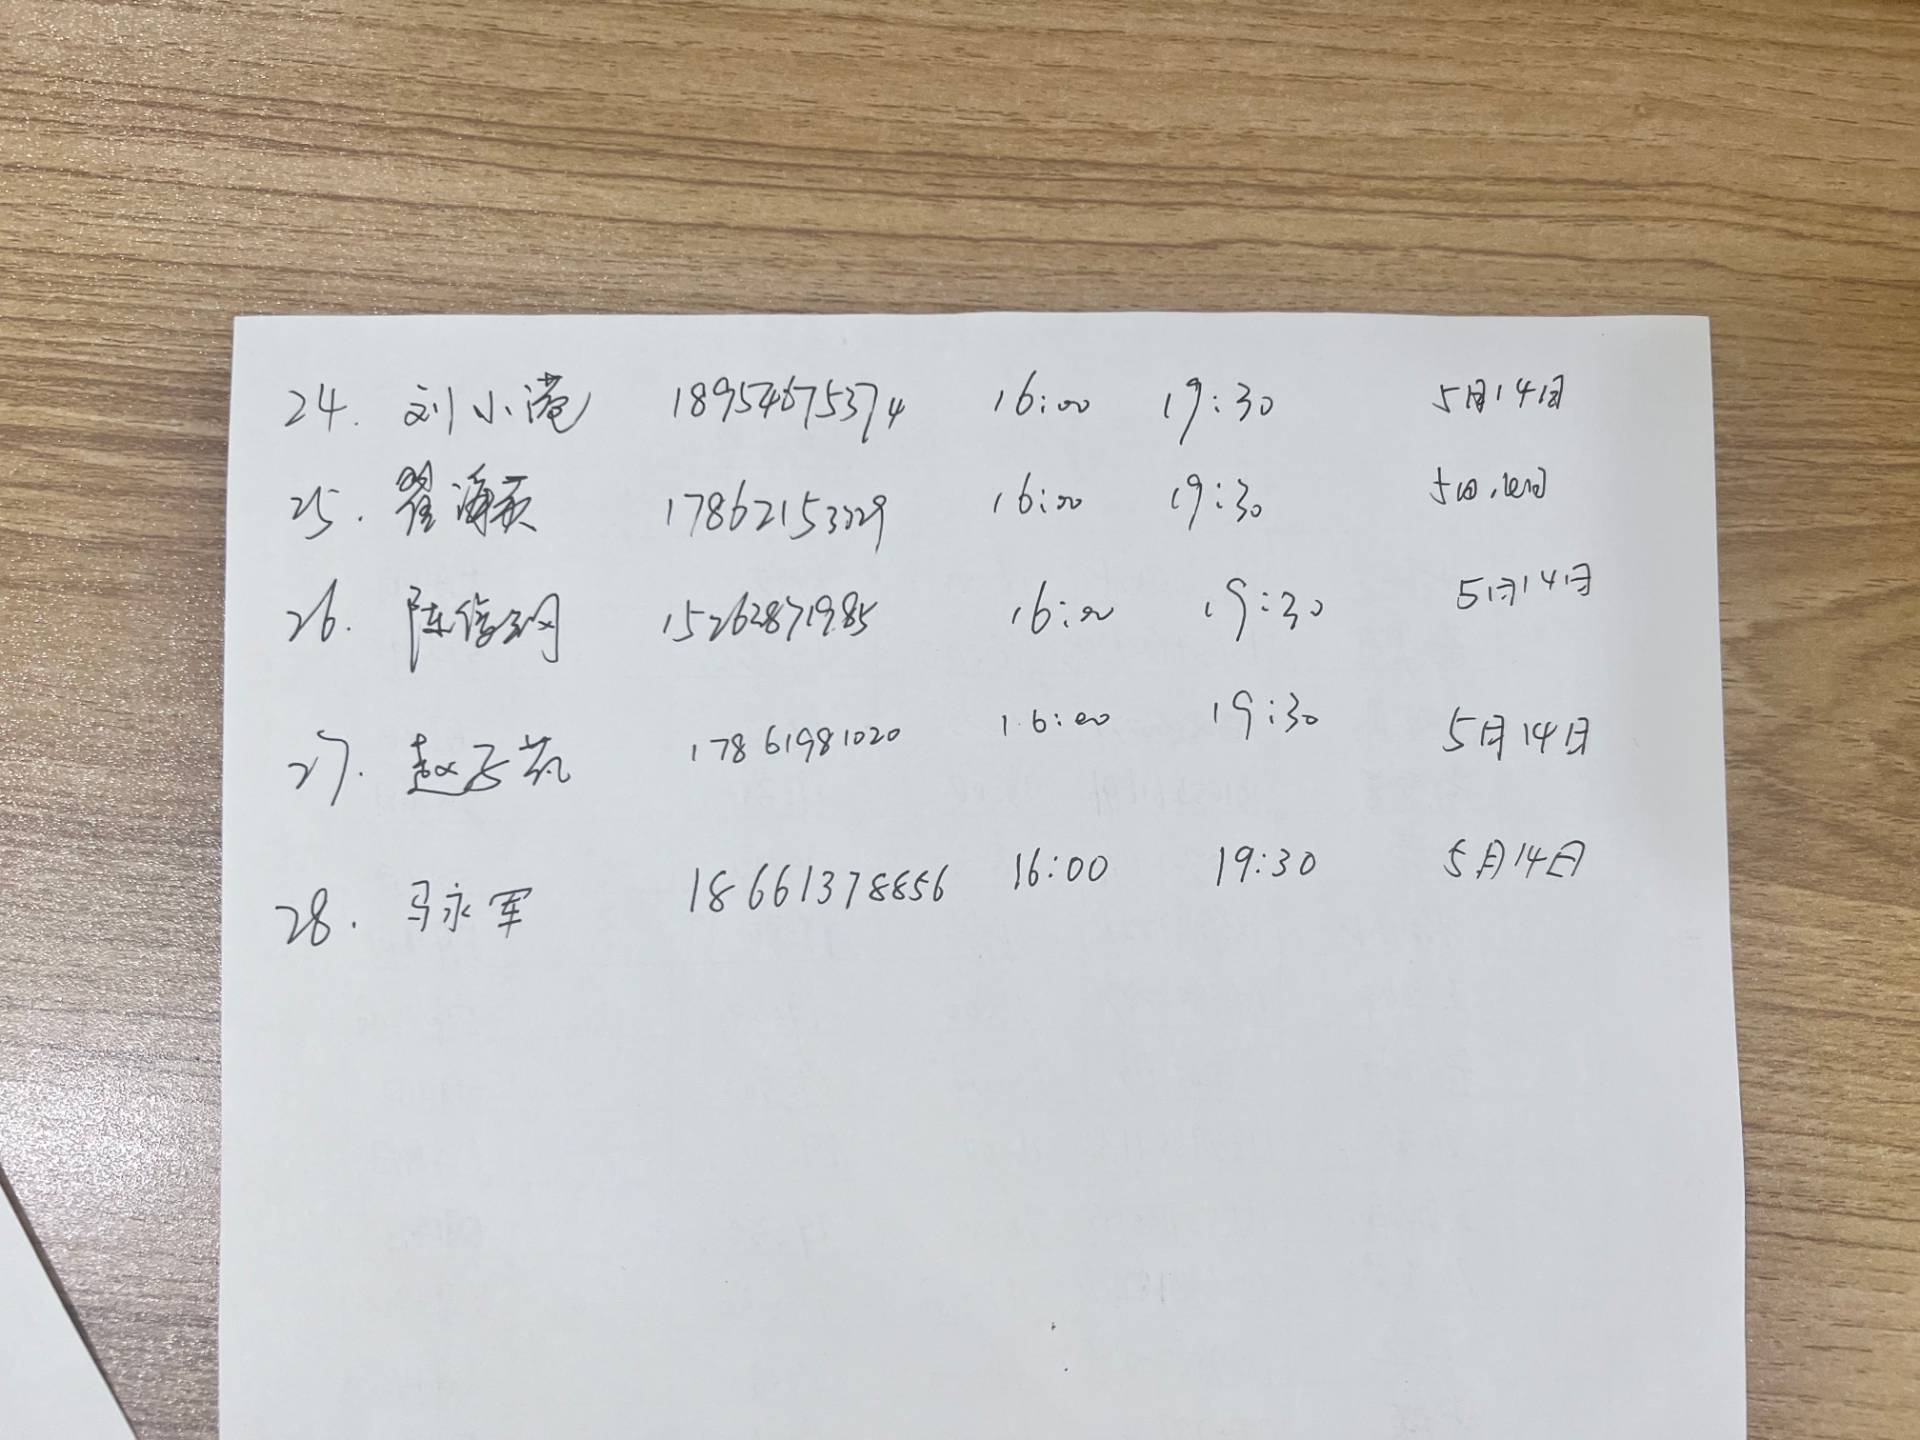 24. 刘小港 18954675374 16:00 19:30 5月14日
25. 翟海英 17862153229 16:00 19:30 5月14日
26. 陈信钢 15262871985 16:00 19:30 5月14日
27. 赵云凯 17861981020 16:00 19:30 5月14日
28. 马永军 18661378856 16:00 19:30 5月14日